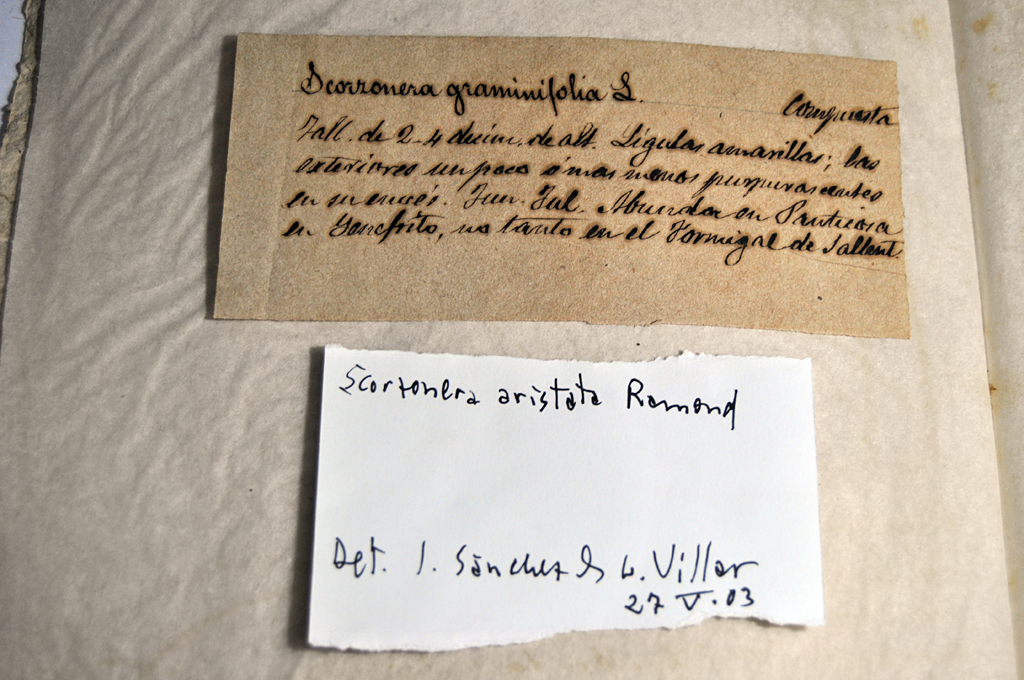 Scorzonera graminifolia L.
Compuesta
Tall. de 2-4 decim. de alt. Lígulas amarillas; las
exteriores un poco ó mas menos purpurascentes
en su envés. Jun. Jul. Abunda en Panticosa
en Yenefrito, no tanto en el Formigal de Sallent.
Scorzonera aristata Ramond
Det. I. Sánchez & L. Villar
27 V. 03